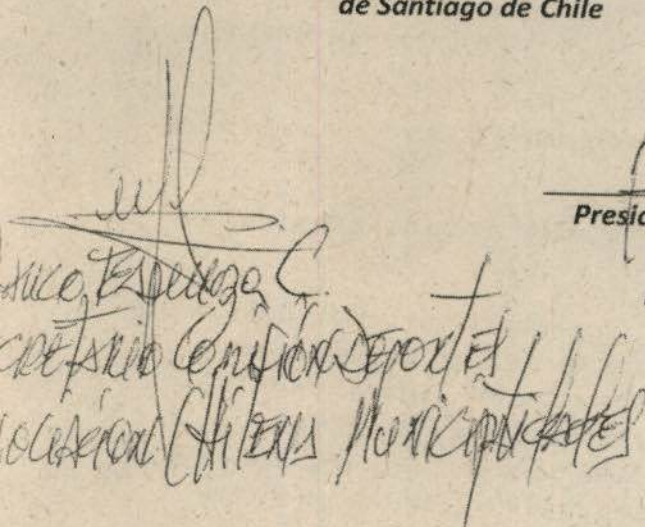 de Santiago de Chile
Presid
Espinoza C.
cretario Comisión Deportes
ociacion Chilena Municipalidades